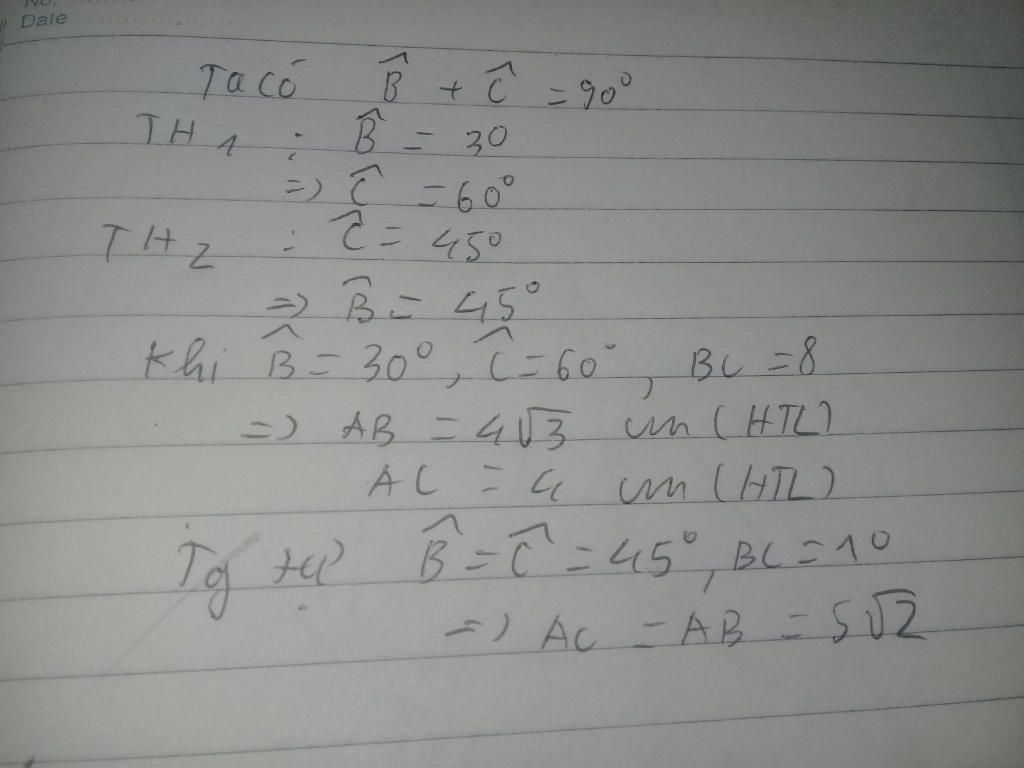 No.
Date
Ta có B̂ + Ĉ = 90°
TH1 : B̂ = 30
=> Ĉ = 60°
TH2 : Ĉ = 45°
=> B̂ = 45°
Khi B̂ = 30°, Ĉ = 60°, BC = 8
=> AB = 4√3 cm (HTL)
AC = 4 cm (HTL)
Tg tự B̂ = Ĉ = 45°, BC = 10
=> AC = AB = 5√2